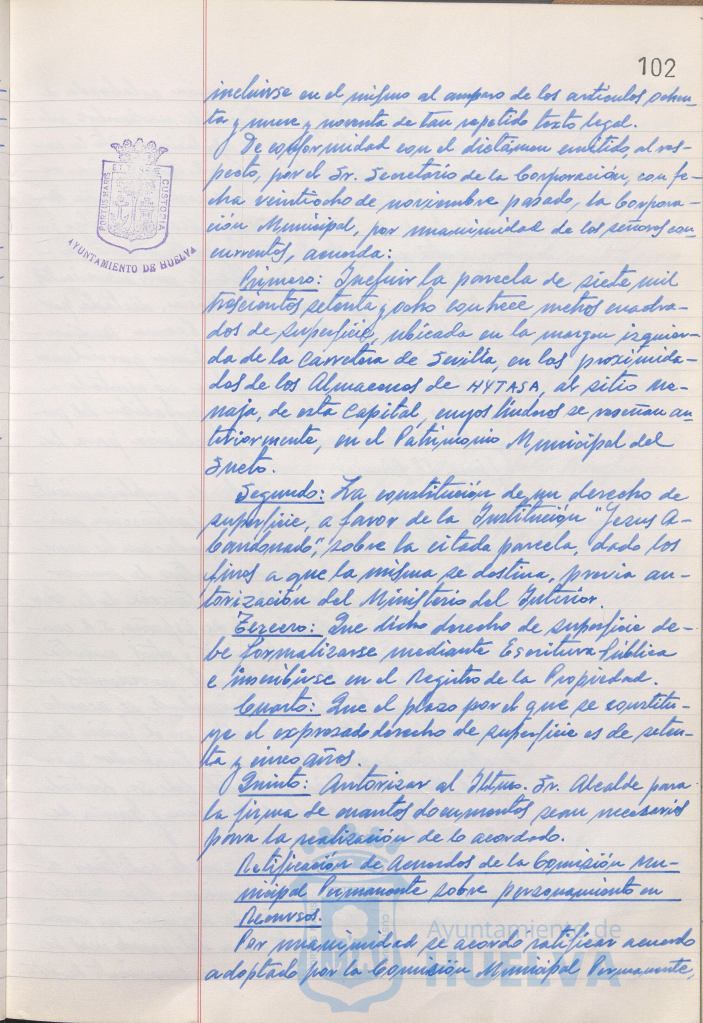 102
incluirse en el mismo al amparo de los artículos ochen-
ta y nueve y noventa de tan repetido texto legal.
De conformidad con el dictámen emitido, al res-
pecto, por el Sr. Secretario de la Corporación, con fe-
cha veintiocho de noviembre pasado, la Corpora-
ción Municipal, por unanimidad de los señores con-
currentes, acuerda:
Primero: Incluir la parcela de siete mil
trescientos setenta y ocho con trece metros cuadra-
dos de superficie, ubicada en la margen izquier-
da de la Carretera de Sevilla, en las proximida-
des de los Almacenes de HYTASA, al sitio
de esta Capital, cuyos linderos se reseñan an-
teriormente, en el Patrimonio Municipal del
Suelo.
Segundo: La constitución de un derecho de
superficie, a favor de la Institución "Jesus A-
bandonado", sobre la citada parcela, dado los
fines a que la misma se destina, previa au-
torización del Ministerio del Interior.
Tercero: Que dicho derecho de superficie de-
be formalizarse mediante Escritura Pública
e inscribirse en el Registro de la Propiedad.
Cuarto: Que el plazo por el que se constitu-
ye el expresado derecho de superficie es de seten-
ta y cinco años.
Quinto: Autorizar al Iltmo. Sr. Alcalde para
la firma de cuantos documentos sean necesarios
para la realización de lo acordado.
Ratificación de Acuerdos de la Comisión Mu-
nicipal Permanente sobre personamiento en
Recursos.
Por unanimidad se acordó ratificar acuerdo
adoptado por la Comisión Municipal Permanente,
PORTUS MARIS
ET TERRE
CUSTODIA
AYUNTAMIENTO DE HUELVA
Ayuntamiento de
HUELVA